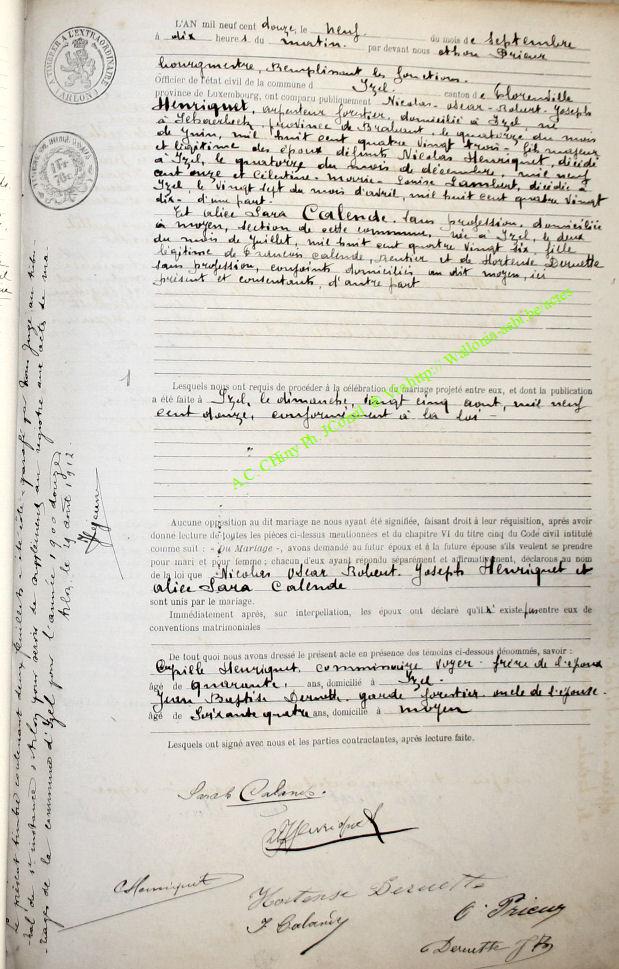 L'AN mil neuf cent douze, le neuf du mois de Septembre
à dix heures du matin par devant nous Othon Prieur
bourgmestre, Remplissant les fonctions
Officier de l'état civil de la commune d Izel canton de Florenville
province de Luxembourg, ont comparu publiquement Nicolas-Oscar-Robert-Joseph
Henriquet, arpenteur forestier, domicilié à Izel né
à Schaerbeek, province de Brabant, le quatorze du mois
de Juin, mil huit cent quatre vingt trois - fils majeur
et légitime des époux défunts Nicolas Henriquet, décédé
à Izel, le quatorze du mois de décembre, mil neuf
cent onze et Célestine-Marie-Louise Lambert, décédée à
Izel, le vingt sept du mois d'avril, mil huit cent quatre vingt
dix - d'une part.
Et Alice Sara Calende, sans profession, domiciliée
à moyen, section de cette commune, née à Izel, le deux
du mois de Juillet, mil huit cent quatre vingt six, fille
légitime de François Calende, Rentier et de Hortense Deruette
sans profession, conjoints domiciliés au dit moyen, ici
présent et consentants, d'autre part
1
Lesquels nous ont requis de procéder à la célébration du mariage projeté entre eux, et dont la publication
a été faite à Izel, le dimanche, vingt cinq aout, mil neuf
cent douze, conformément à la loi -
Aucune opposition au dit mariage ne nous ayant été signifiée, faisant droit à leur réquisition, après avoir
donné lecture de toutes les pièces ci-dessus mentionnées et du chapitre VI du titre cinq du Code civil intitulé
comme suit : « Du Mariage », avons demandé au futur époux et à la future épouse s'ils veulent se prendre
pour mari et pour femme ; chacun d'eux ayant répondu séparément et affirmativement, déclarons au nom
de la loi que Nicolas Oscar Robert Joseph Henriquet et
Alice Sara Calende
sont unis par le mariage.
Immédiatement après, sur interpellation, les époux ont déclaré qu'il n'existe pas entre eux de
conventions matrimoniales
De tout quoi nous avons dressé le présent acte en présence des témoins ci-dessous dénommés, savoir :
Henriquet, commissaire voyer frère de l'époux
âgé de quarante, ans, domicilié à Izel
Jean Baptiste Deruette garde forestier oncle de l'épouse
âgé de Soixante quatre ans, domicilié à moyen
Lesquels ont signé avec nous et les parties contractantes, après lecture faite.
Sarah Calande.
Henriquet
C Henriquet
Hortense Deruette
F Calande
O. Prieur
Deruette J B
Le présent timbre contenant deux feuillets a été coté et paraphé par nous Juge au tribu-
nal de 1re instance à Arlon pour servir de supplément au registre aux actes de ma-
riages de la commune d'Izel pour l'année 1900 douze.
Arlon, le 29 août 1912.
TIMBRE A L'EXTRAORDINAIRE
ARLON
1 Fr
A.C. CHiny Ph. JCornel @ Via http://Wallonia-asbl.be/actes